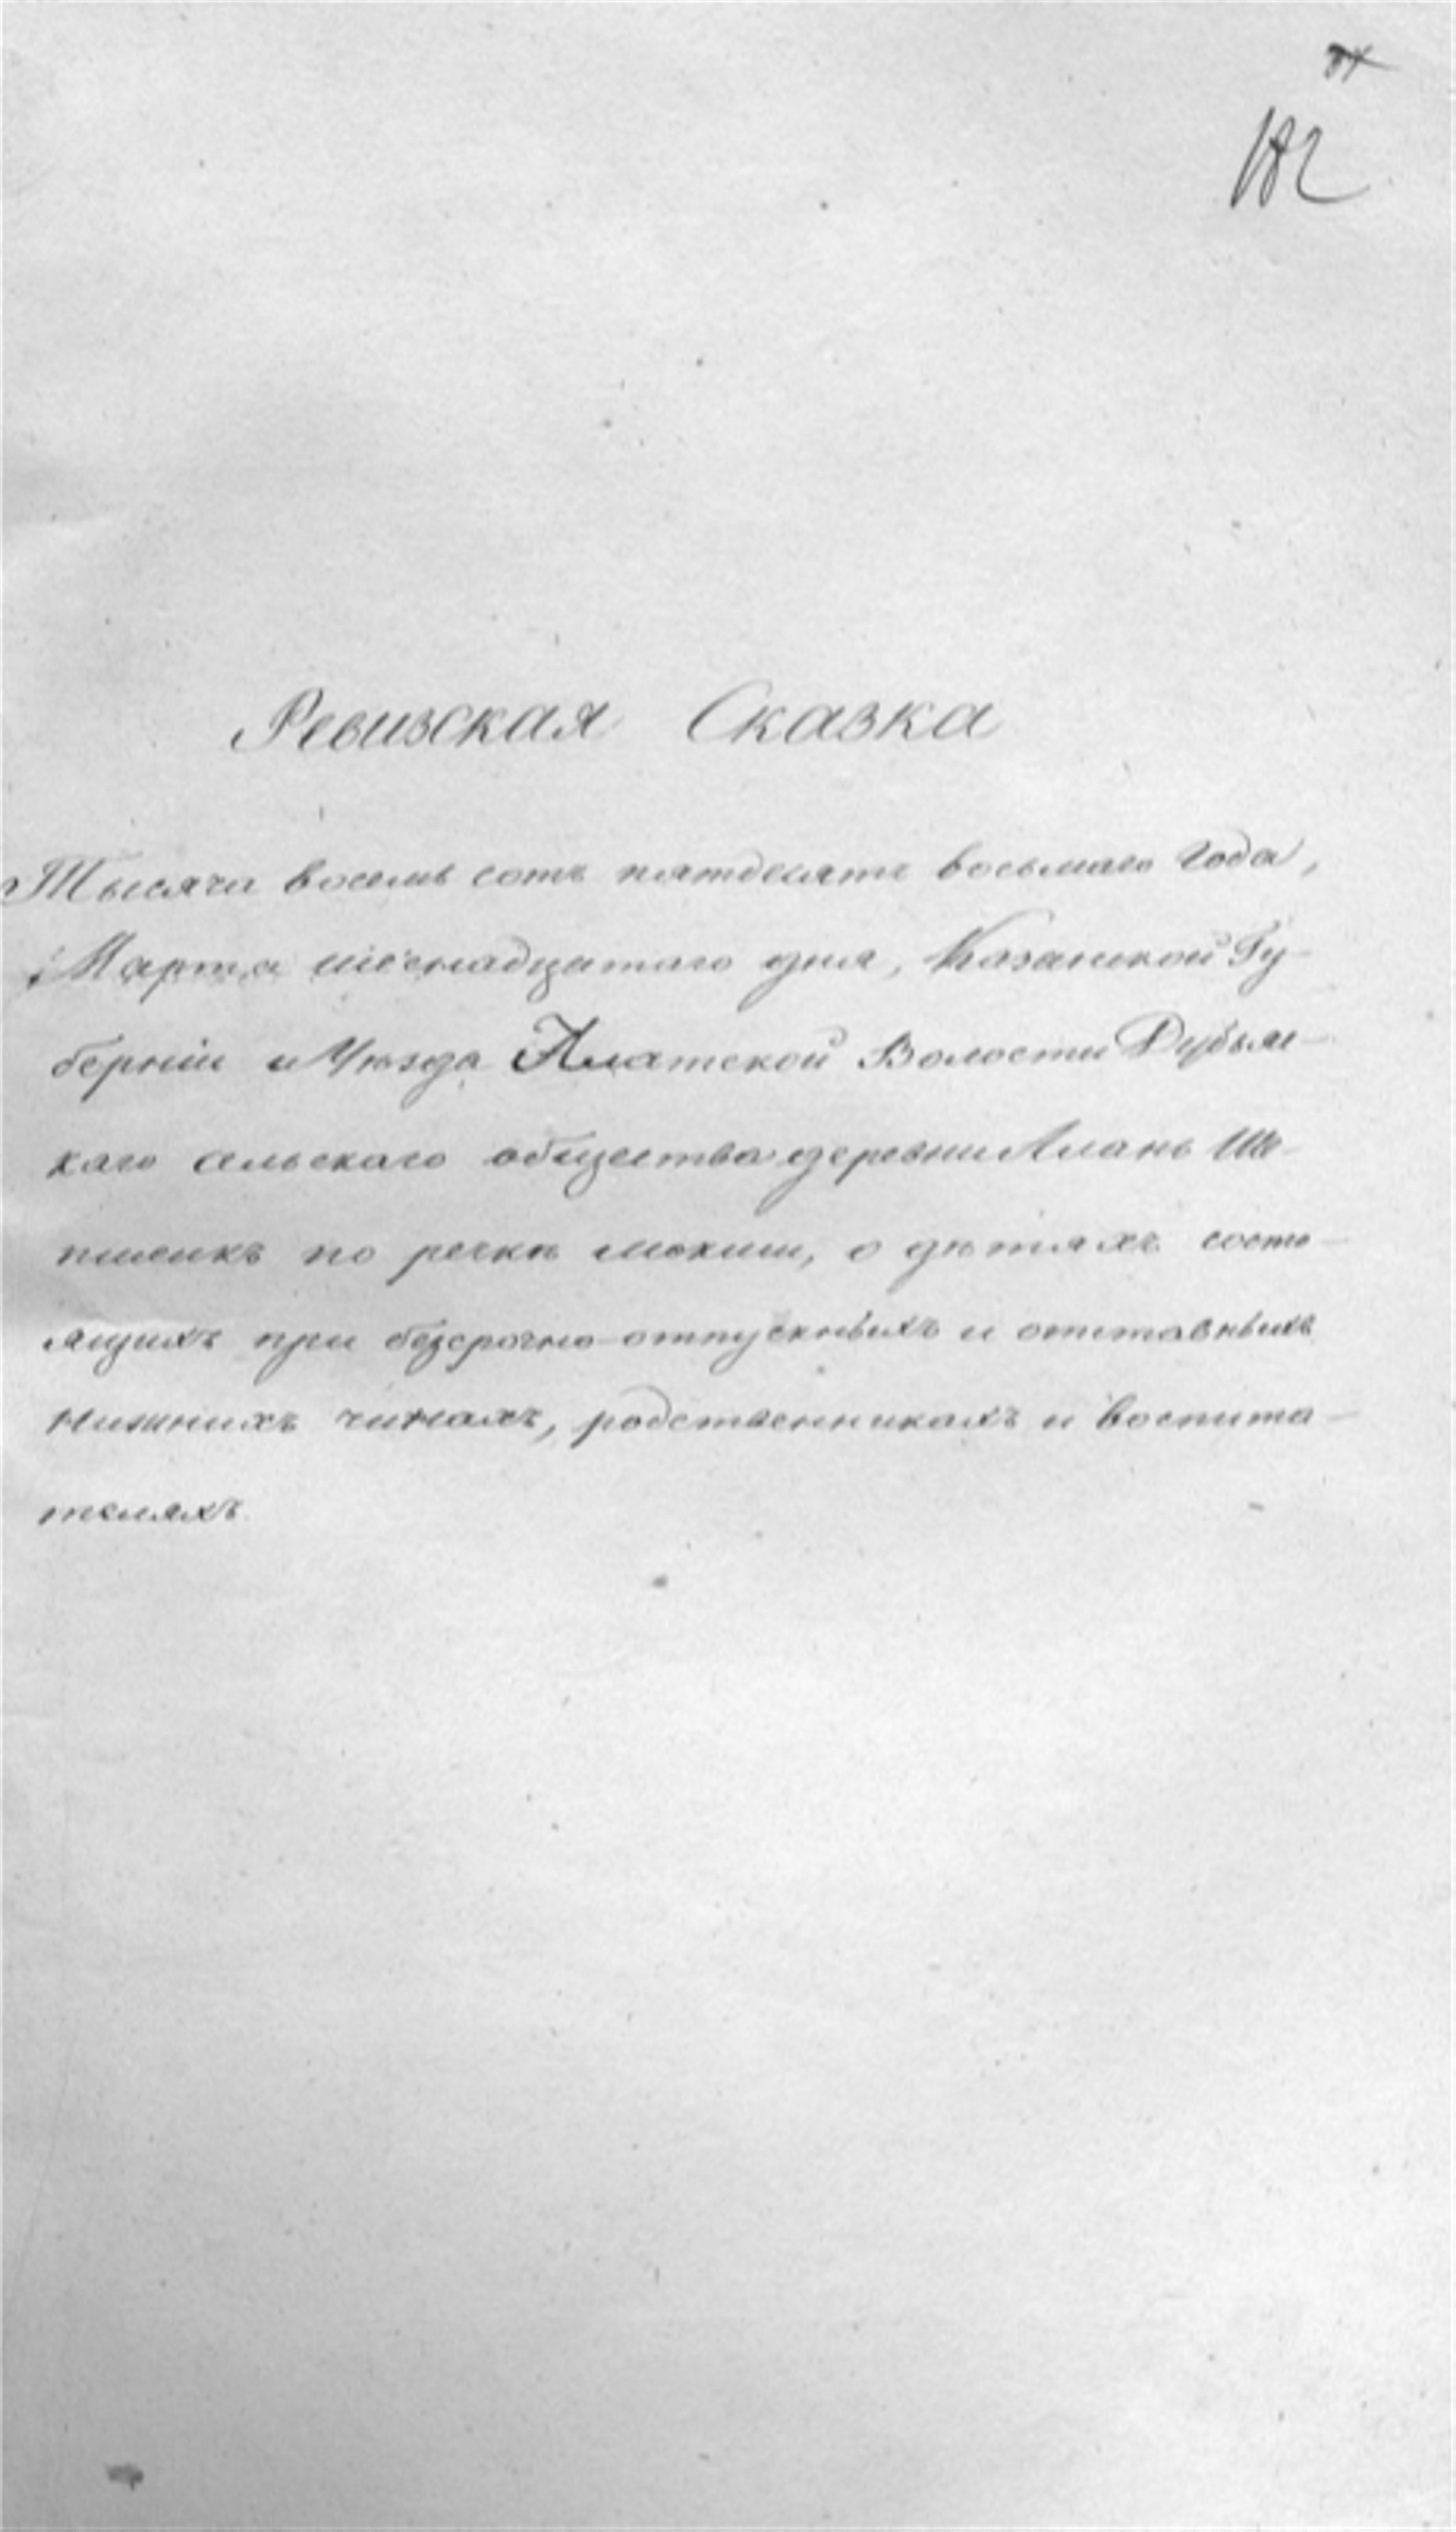 182
Ревизская Сказка
Тысяча восемь сотъ пятдесятъ восьмаго года,
Марта шеснадцатаго дня, Казанской Гу-
берніи и Уѣзда Алатской Волости Дубъяс-
каго сельскаго общества деревни Алань
по речкѣ о дѣтяхъ состо-
ящихъ при безсрочно-отпускныхъ и отставныхъ
нижнихъ чинахъ, родственникахъ и воспита-
теляхъ.